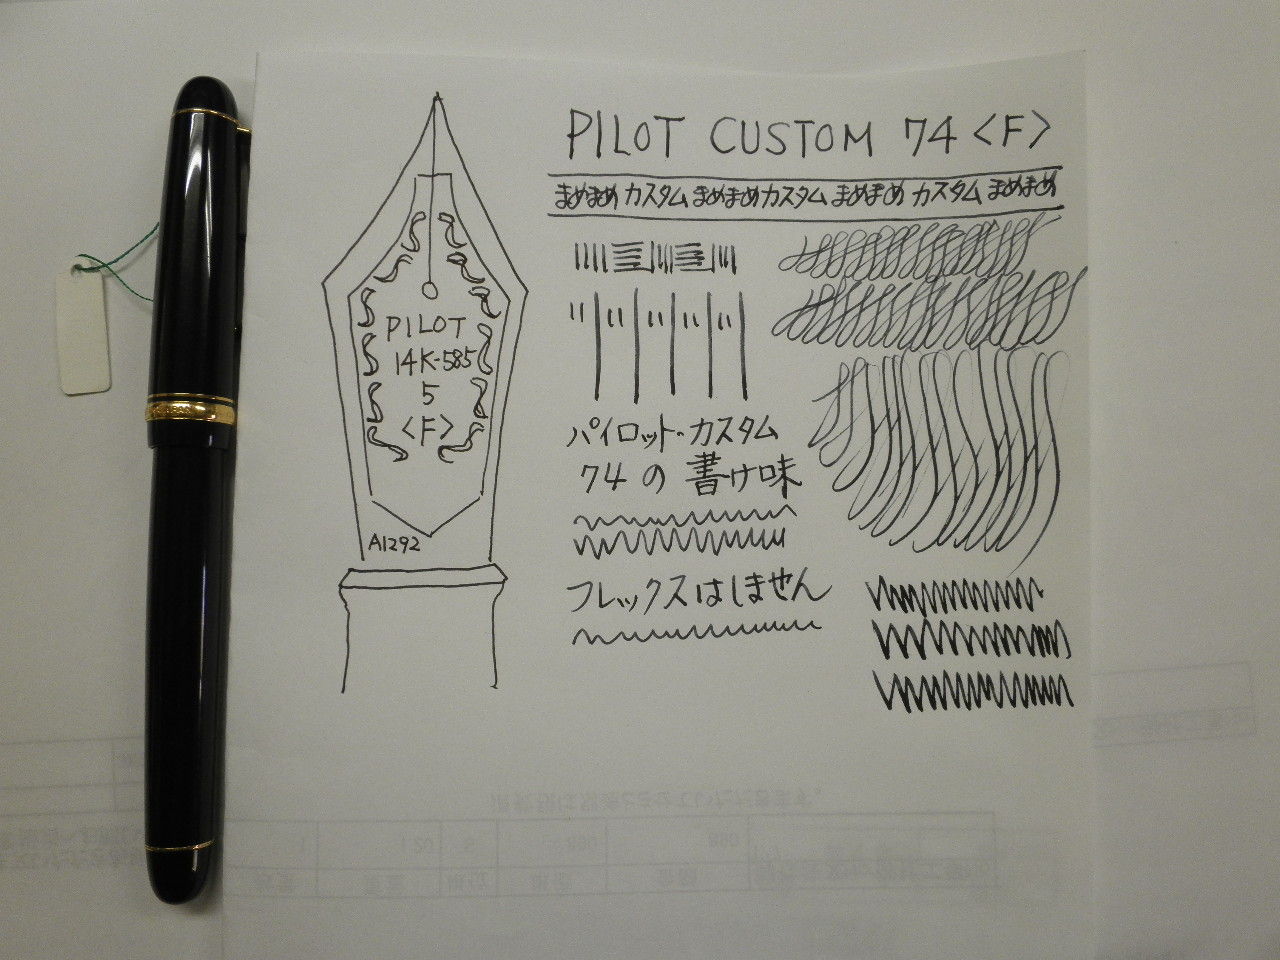 PILOT CUSTOM 74 <F>
まめまめ カスタム まめまめ カスタム まめまめ カスタム まめまめ
PILOT
14K-585
5
<F>
A1292
パイロット・カスタム
74の書け味
フレックスはしません